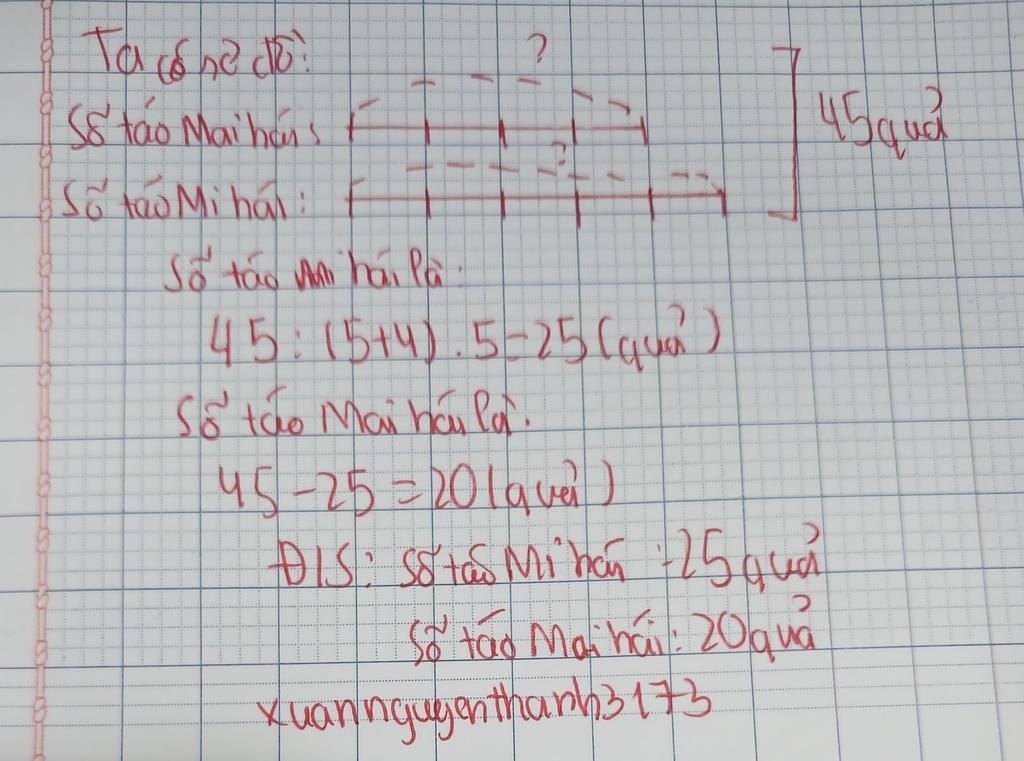 Ta có sơ đồ:
?
Số táo Mai hái: 45 quả
?
Số táo Mi hái:
Số táo Mi hái là:
45 : (5+4) . 5 = 25 (quả)
Số táo Mai hái là:
45 - 25 = 20 (quả)
Đ/S: Số táo Mi hái : 25 quả
Số táo Mai hái: 20 quả
xuannguyenthanh3173